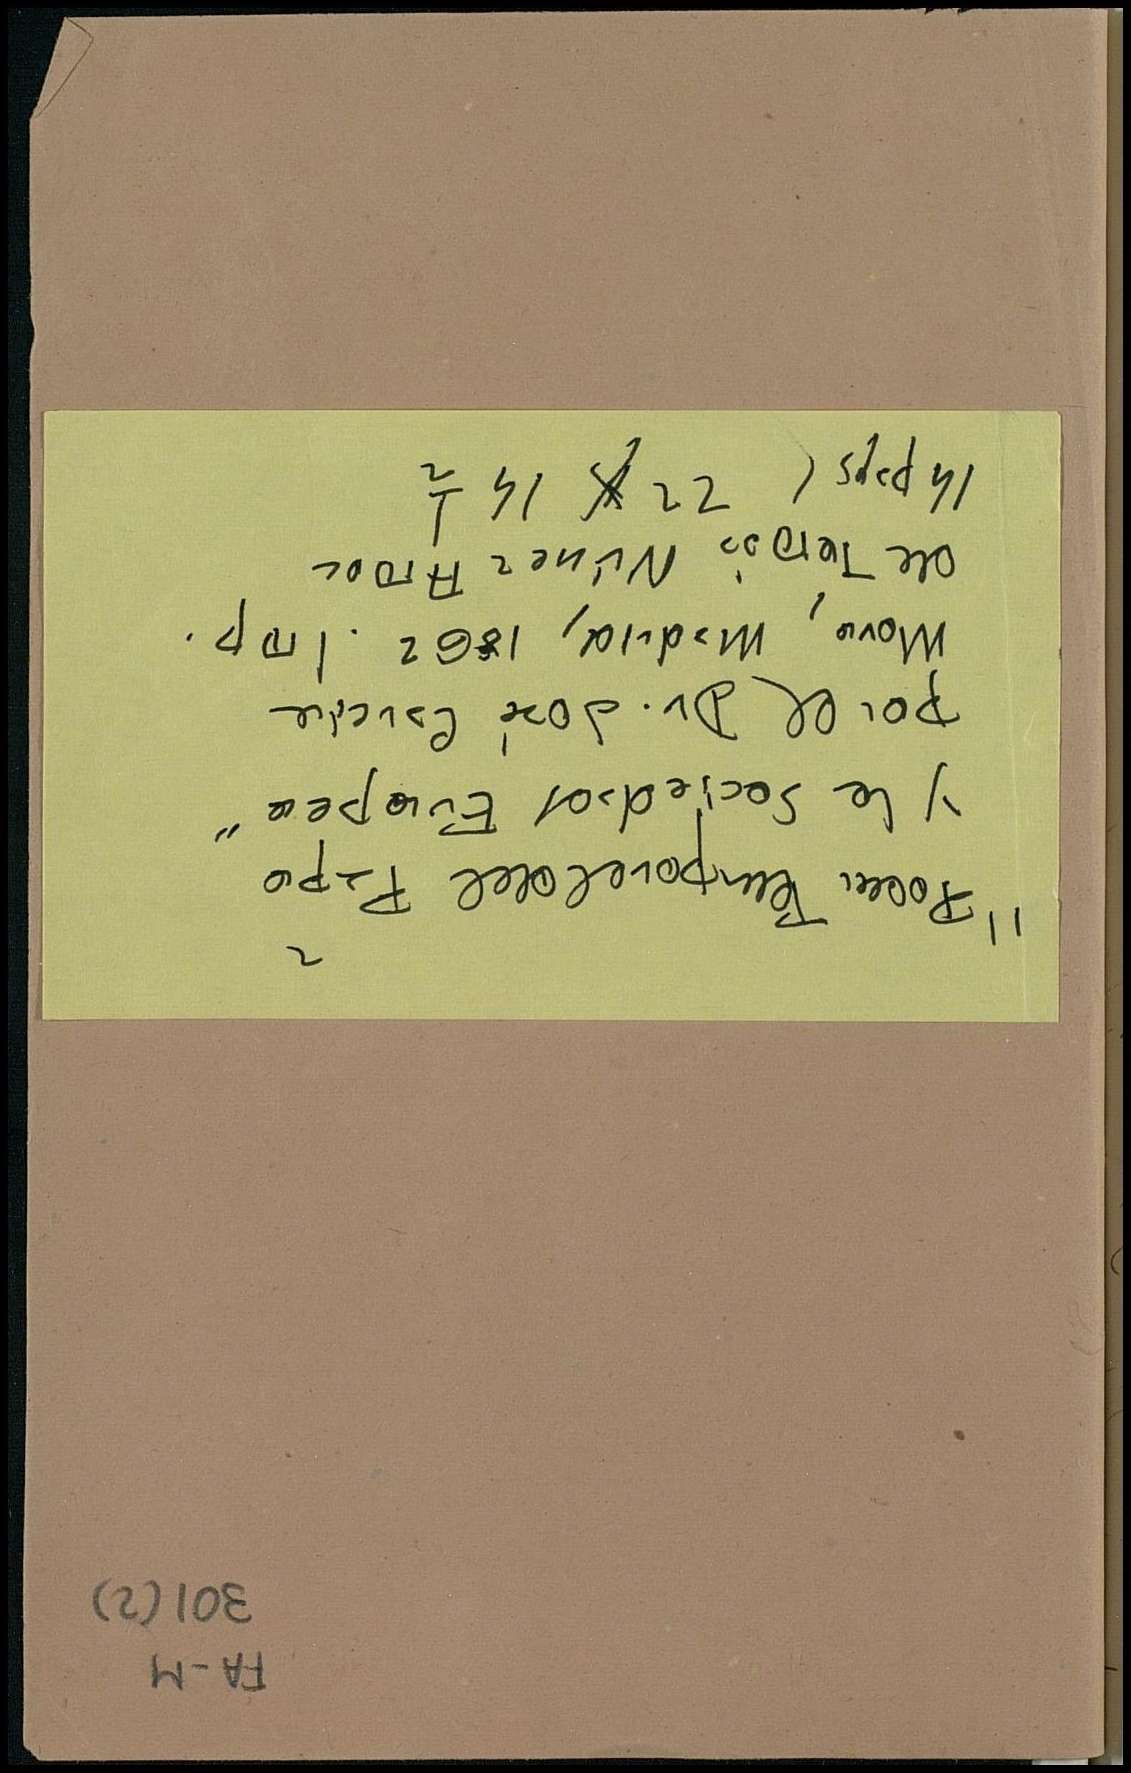 FA-M
301(2)
2
"Poder Temporal del Papa
y la Sociedad Europea"
por el Dr. José Garcia
Mora, Madrid, 1862. Imp.
de Tomás Nuñez Amor
14 pags, 22 x 14 1/2